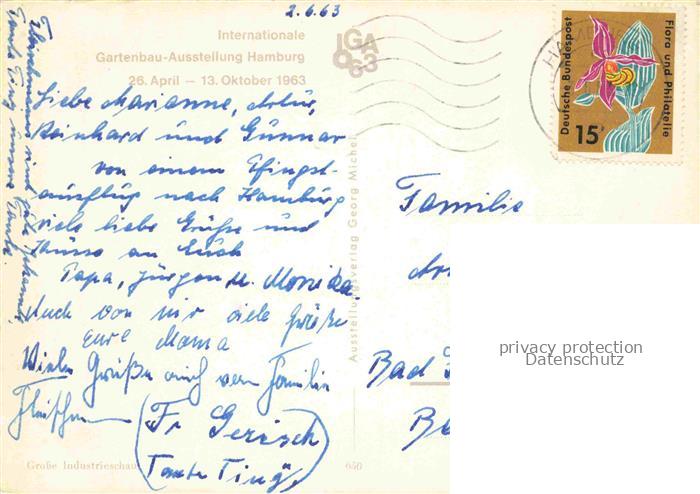 2.6.63
Internationale
Gartenbau-Ausstellung Hamburg
26. April — 13. Oktober 1963
IGA
63
Deutsche Bundespost
Flora und Philatelie
15
HA
Liebe Marianne, Artur,
Reinhard und Gunnar
von einem Pfingst-
ausflug nach Hamburg
viele liebe Grüße und
Küsse an Euch
Papa, Jürgen u. Monika,
Auch von mir viele Grüße
eure Mama
Viele Grüße auch von Familie
(Fr. Gerisch
Tante
Große Industrieschau
650
Ausstellungsverlag Georg Michel
Familie
Bad
privacy protection
Datenschutz